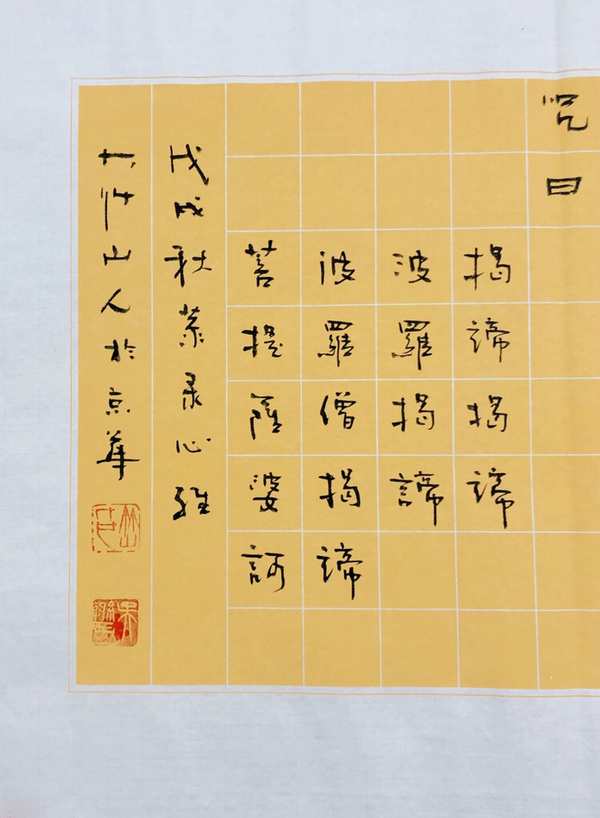 呪曰
揭諦揭諦
波羅揭諦
波羅僧揭諦
菩提薩婆訶
戊戌秋录心經
山人於京華